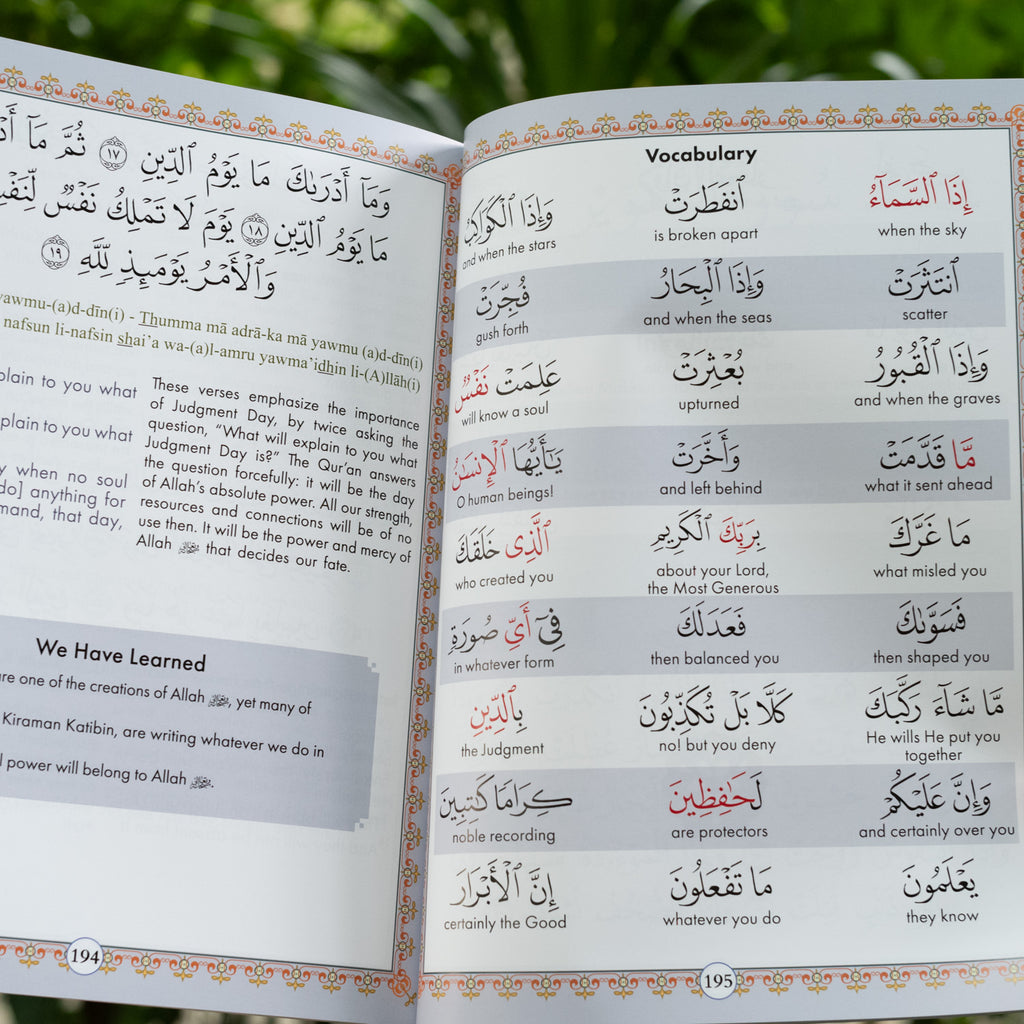 وَمَآ أَدْرَىٰكَ مَا يَوْمُ ٱلدِّينِ ١٧ ثُمَّ مَآ
مَا يَوْمُ ٱلدِّينِ ١٨ يَوْمَ لَا تَمْلِكُ نَفْسٌ
وَٱلْأَمْرُ يَوْمَئِذٍ لِّلَّهِ ١٩
yawmu-(a)d-dīn(i) - Thumma mā adrā-ka mā yawmu (a)d-dīn(i)
nafsun li-nafsin shai’a wa-(a)l-amru yawma’idhin li-(A)llāh(i)
plain to you what
plain to you what
y when no soul
do] anything for
mand, that day,
These verses emphasize the importance
of Judgment Day, by twice asking the
question, “What will explain to you what
Judgment Day is?” The Qur’an answers
the question forcefully: it will be the day
of Allah’s absolute power. All our strength,
resources and connections will be of no
use then. It will be the power and mercy of
Allah ﷻ that decides our fate.
We Have Learned
re one of the creations of Allah ﷻ, yet many of
Kiraman Katibin, are writing whatever we do in
l power will belong to Allah ﷻ.
194
Vocabulary
إِذَا ٱلسَّمَآءُ ٱنفَطَرَتْ وَإِذَا ٱلْكَوَاكِبُ
when the sky is broken apart and when the stars
ٱنتَثَرَتْ وَإِذَا ٱلْبِحَارُ فُجِّرَتْ
scatter and when the seas gush forth
وَإِذَا ٱلْقُبُورُ بُعْثِرَتْ عَلِمَتْ نَفْسٌ
and when the graves upturned will know a soul
مَّا قَدَّمَتْ وَأَخَّرَتْ يَـٰٓأَيُّهَا ٱلْإِنسَـٰنُ
what it sent ahead and left behind O human beings!
مَا غَرَّكَ بِرَبِّكَ ٱلْكَرِيمِ ٱلَّذِى خَلَقَكَ
what misled you about your Lord, the Most Generous who created you
فَسَوَّىٰكَ فَعَدَلَكَ فِىٓ أَىِّ صُورَةٍ
then shaped you then balanced you in whatever form
مَّا شَآءَ رَكَّبَكَ كَلَّا بَلْ تُكَذِّبُونَ بِٱلدِّينِ
He wills He put you together no! but you deny the Judgment
وَإِنَّ عَلَيْكُمْ لَحَـٰفِظِينَ كِرَامًا كَـٰتِبِينَ
and certainly over you are protectors noble recording
يَعْلَمُونَ مَا تَفْعَلُونَ إِنَّ ٱلْأَبْرَارَ
they know whatever you do certainly the Good
195